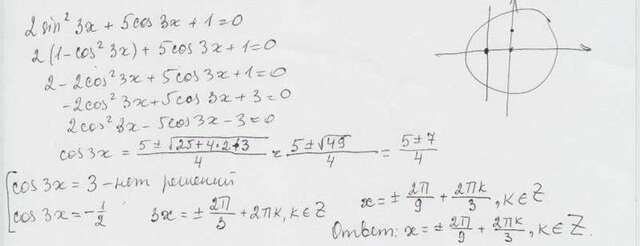 2 sin² 3x + 5 cos 3x + 1 = 0
2 (1 - cos² 3x) + 5 cos 3x + 1 = 0
2 - 2cos² 3x + 5 cos 3x + 1 = 0
-2cos² 3x + 5 cos 3x + 3 = 0
2cos² 3x - 5cos 3x - 3 = 0
cos 3x = (5 ± √(25 + 4·2·3))/4 = (5 ± √49)/4 = (5 ± 7)/4
[cos 3x = 3 - нет решений
[cos 3x = -1/2 3x = ± 2π/3 + 2πk, k ∈ Z x = ± 2π/9 + 2πk/3, k ∈ Z
Ответ: x = ± 2π/9 + 2πk/3, k ∈ Z.